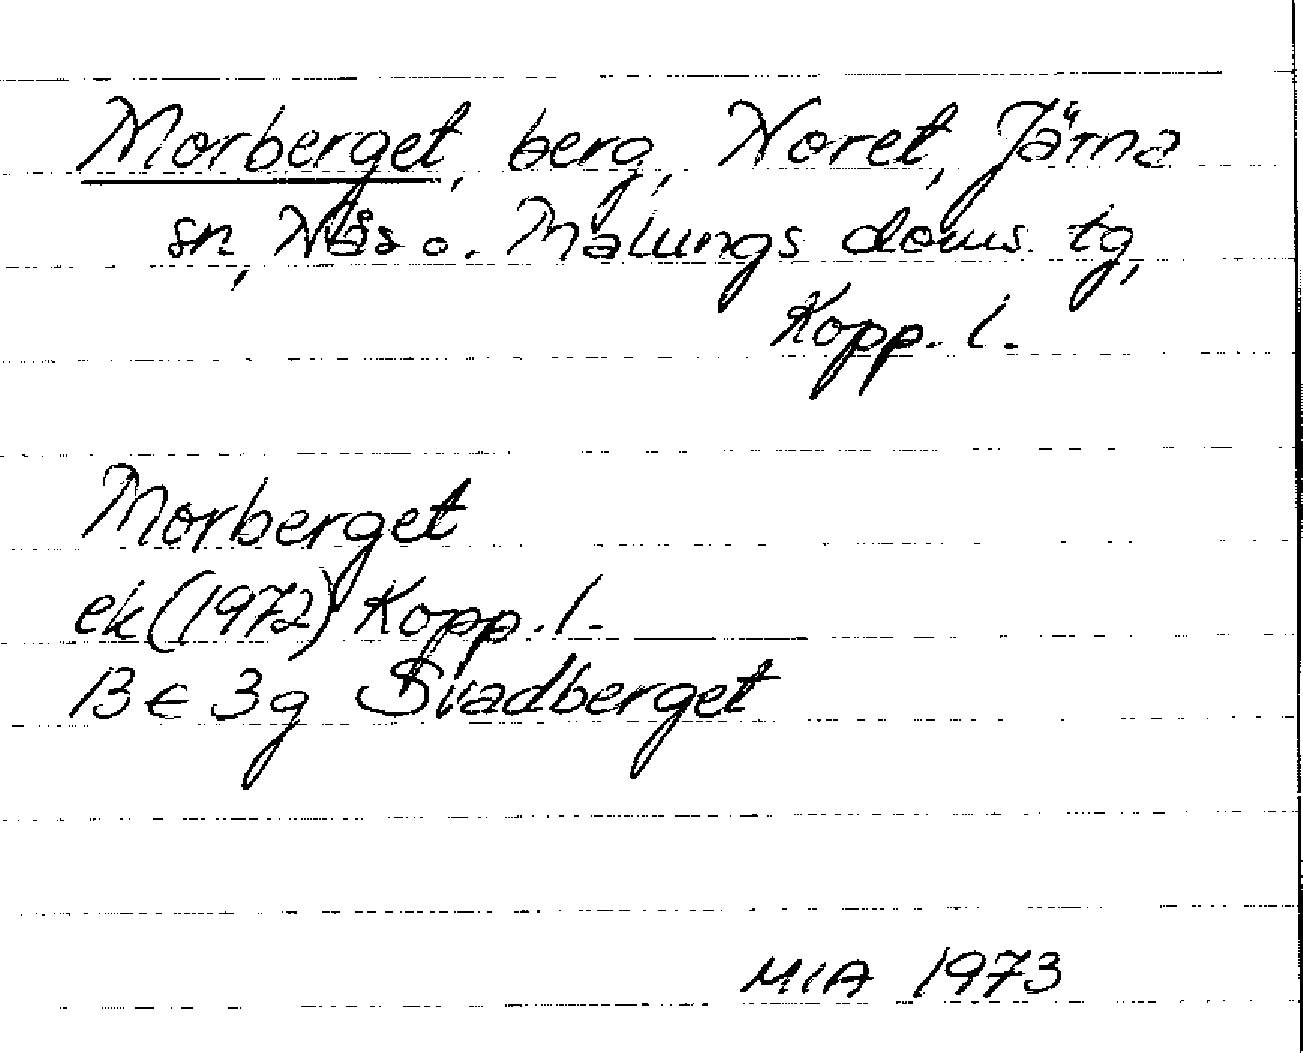 Morberget, berg, Noret, Järna
sn, Nås o. Malungs doms. tg,
Kopp. l.
Morberget
ek (1972) Kopp. l.
13 E 3g Svadberget
MIA 1973